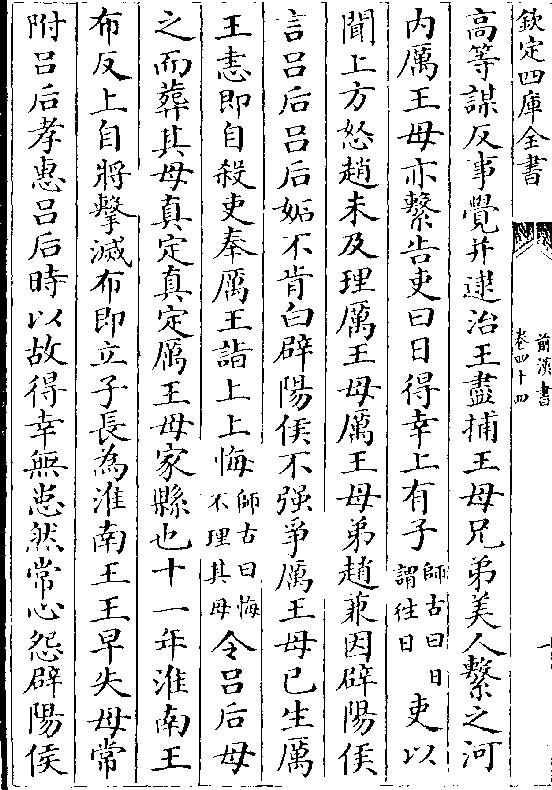 欽定四庫全書
前漢書
卷四十四
高等謀反事覺并逮治王盡捕王母兄弟美人繫之河
内厲王母亦繫告吏曰日得幸上有子師古曰日謂往日吏以
聞上方怒趙未及理厲王母厲王母弟趙兼因辟陽侯
言吕后吕后妬不肯白辟陽侯不强爭厲王母已生厲
王恚即自殺吏奉厲王詣上上悔師古曰悔不理其母令吕后母
之而葬其母真定真定厲王母家縣也十一年淮南王
布反上自將擊滅布即立子長為淮南王王早失母常
附吕后孝惠吕后時以故得幸無患然常心怨辟陽侯